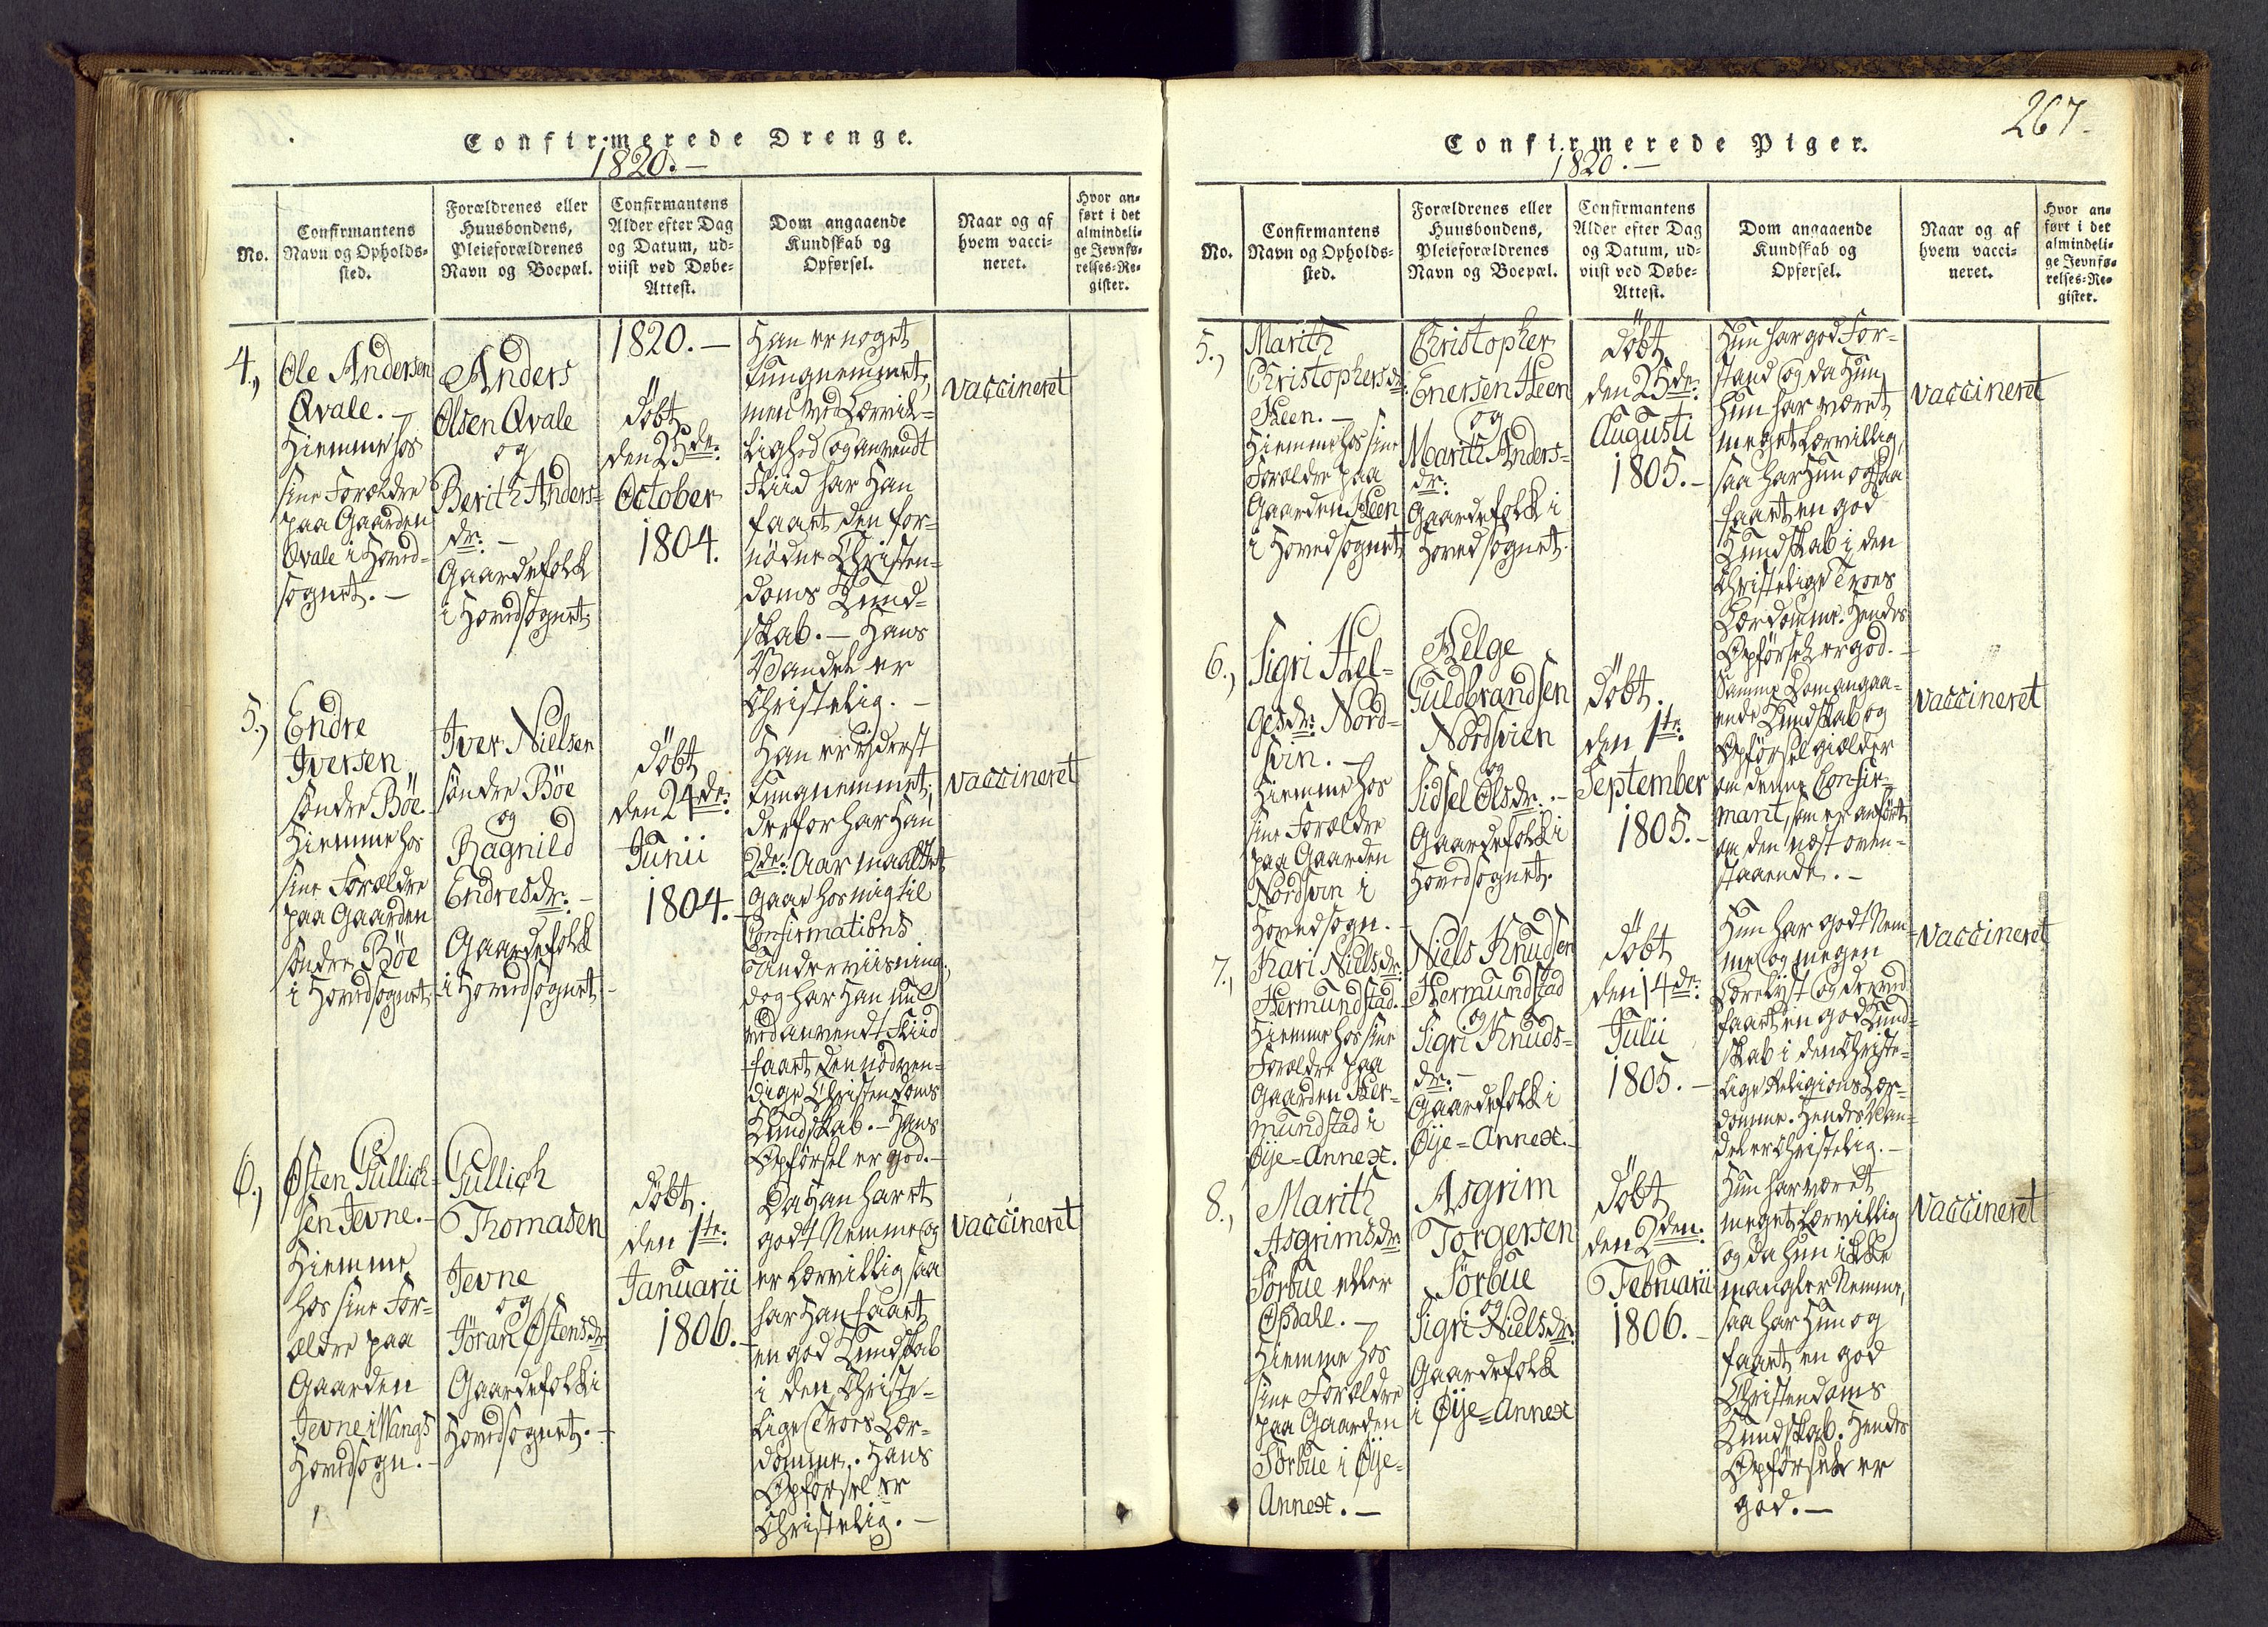 Confirmerede Drenge.
1820. —
No.
Confirmantens
Navn og Opholds-
sted.
Forældrenes eller
Huusbondens,
Pleieforældrenes
Navn og Boepæl.
Confirmantens
Alder efter Dag
og Datum, ud-
viist ved Døbe-
Attest.
Dom angaaende
Kundskab og
Opførsel.
Naar og af
hvem vacci-
neret.
Hvor an-
ført i det
almindeli-
ge Jevnfø-
relses-Re-
gister.
4.,
Ole Andersen
Qvale. —
Hiemme hos
sine Forældre
paa Gaarden
Qvale i Hoved-
sognet. —
Anders
Olsen Qvale
og
Berith Anders=
dr: —
Gaardefolk
i Hovedsognet
1820. —
döbt
den 25de:
October
1804.
Han er noget
tungnemmet,
men ved Lærvil-
lighed og anvendt
Fliid har Han
faaet den for-
nödne Christen-
doms Kund-
skab. — Hans
Vandel er
Christelig. —
vaccineret
5.,
Endre
Iversen
söndre Böe
Hiemme hos
sine Forældre
paa Gaarden
söndre Böe
i Hovedsognet
Iver Nielsen
söndre Böe
og
Ragnild
Endresdr: —
Gaardefolk
i Hovedsognet —
döbt
den 24de:
Junii
1804. —
Han er yderst
tungnemmet;
derfor har Han
2de: Aar maattet
gaae hos mig til
Confirmations
Underviisning;
dog har Han nu
ved anvendt Fliid
faaet den nödven-
dige Christendoms
Kundskab. — Hans
Opförsel er god. —
vaccineret
6.,
Østen Gullich-
sen Jevne. —
Hiemme
hos sine For-
ældre paa
Gaarden
Jevne i Wangs
Hovedsogn. —
Gullich
Thomasen
Jevne
og
Jöran Østensdr
Gaardefolk i
Hovedsognet. —
döbt.
den 1te:
Januarii
1806. —
Da Han har et
godt Nemme og
er Lærvillig, saa
har Han faaet
en god Kundskab
i den Christe-
lige Troes Lær-
domme. Hans
Opförsel er
Christelig. —
vaccineret
267.
Confirmerede Piger.
1820. —
No.
Confirmantens
Navn og Opholds-
sted.
Forældrenes eller
Huusbondens,
Pleieforældrenes
Navn og Boepæl.
Confirmantens
Alder efter Dag
og Datum, ud-
viist ved Døbe-
Attest.
Dom angaaende
Kundskab og
Opførsel.
Naar og af
hvem vacci-
neret.
Hvor an-
ført i det
almindeli-
ge Jevnfø-
relses-Re-
gister.
5.,
Marith
Christophersdr:
Heen. —
Hiemme hos sine
Forældre paa
Gaarden Heen
i Hovedsognet
Christopher
Enersen Heen
og
Marith Anders=
dr:
Gaardefolk i
Hovedsognet.
döbt
den 25de:
Augusti
1805. —
Hun har god For-
stand og da Hun
Hun har været
meget Lærvillig,
saa har Hun ogsaa
faaet en god
Kundskab i den
Christelige Troes
Lærdomme. Hendes
Opförsel er god. —
vaccineret
6.,
Sigri Hel-
gesdr: Nord-
svin. —
Hiemme hos
sine Forældre
paa Gaarden
Nordsvin i
Hovedsogn. —
Helge
Guldbrandsen
Nordsvien
og
Sidsel Olsdr: —
Gaardefolk i
Hovedsognet.
döbt.
den 1te:
September
1805. —
Samme Dom angaa-
ende Kundskab og
Opförsel gielder
om denne Confir-
mant, som er anfört
om den næst oven-
staaende. —
vaccineret
7.,
Kari Nielsdr:
Hermundstad. —
Hiemme hos sine
Forældre paa
Gaarden Her-
mundstad i
Øije=Annex.
Niels Knudsen
Hermundstad
og
Sigri Knuds=
dr: —
Gaardefolk i
Øije=Annex. —
döbt
den 14de:
Julii
1805. —
Hun har godt Nem-
me og megen
Lærelyst og derved
faaet en god Kund-
skab i den Christe-
lige Religions Lær-
domme. Hendes Van-
del er Christelig. —
vaccineret
8.,
Marith
Asgrimsdr:
Sörbüe eller
Opdahl. —
Hiemme hos
sine Forældre
paa Gaarden
Sörbüe i Øije=
Annex. —
Asgrim
Torgersen
Sörbüe
og
Sigri Nielsdr:
Gaardefolk
i Øije=Annex
döbt
den 2den:
Februarii
1806. —
Hun har været
meget Lærvillig
og da hun ikke
mangler Nemme,
saa har Hun og
faaet en god
Christendoms
Kundskab. Hendes
Opförsel er
god. —
vaccineret